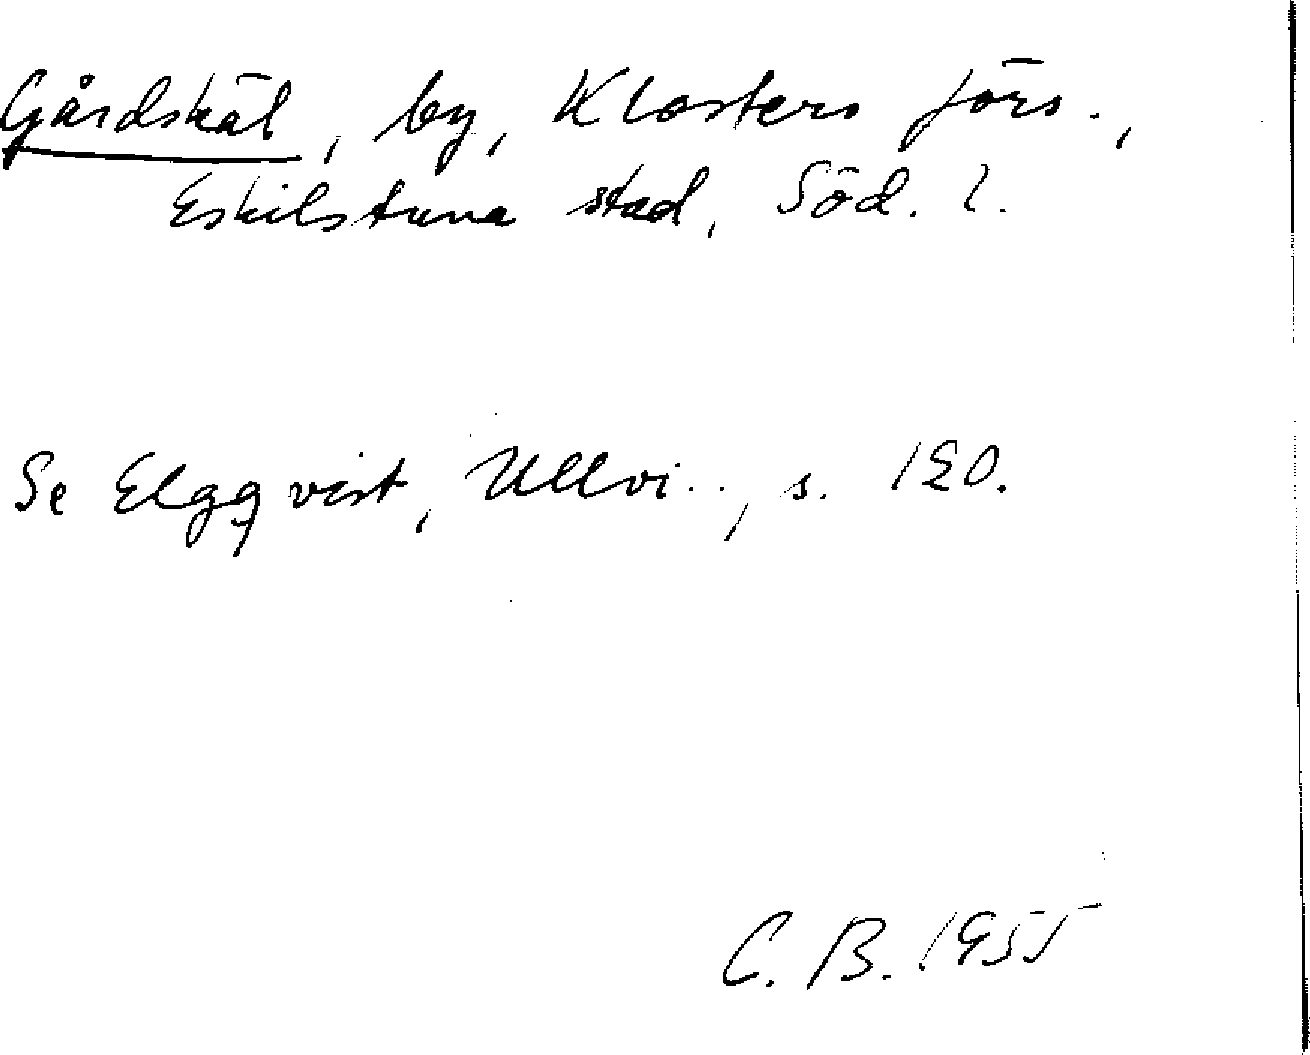 Gårdskäl, by, Klostersförs.,
Eskilstuna stad, Söd. l.
Se Elgqvist, Ullvi.., s. 120.
C. B. 1955